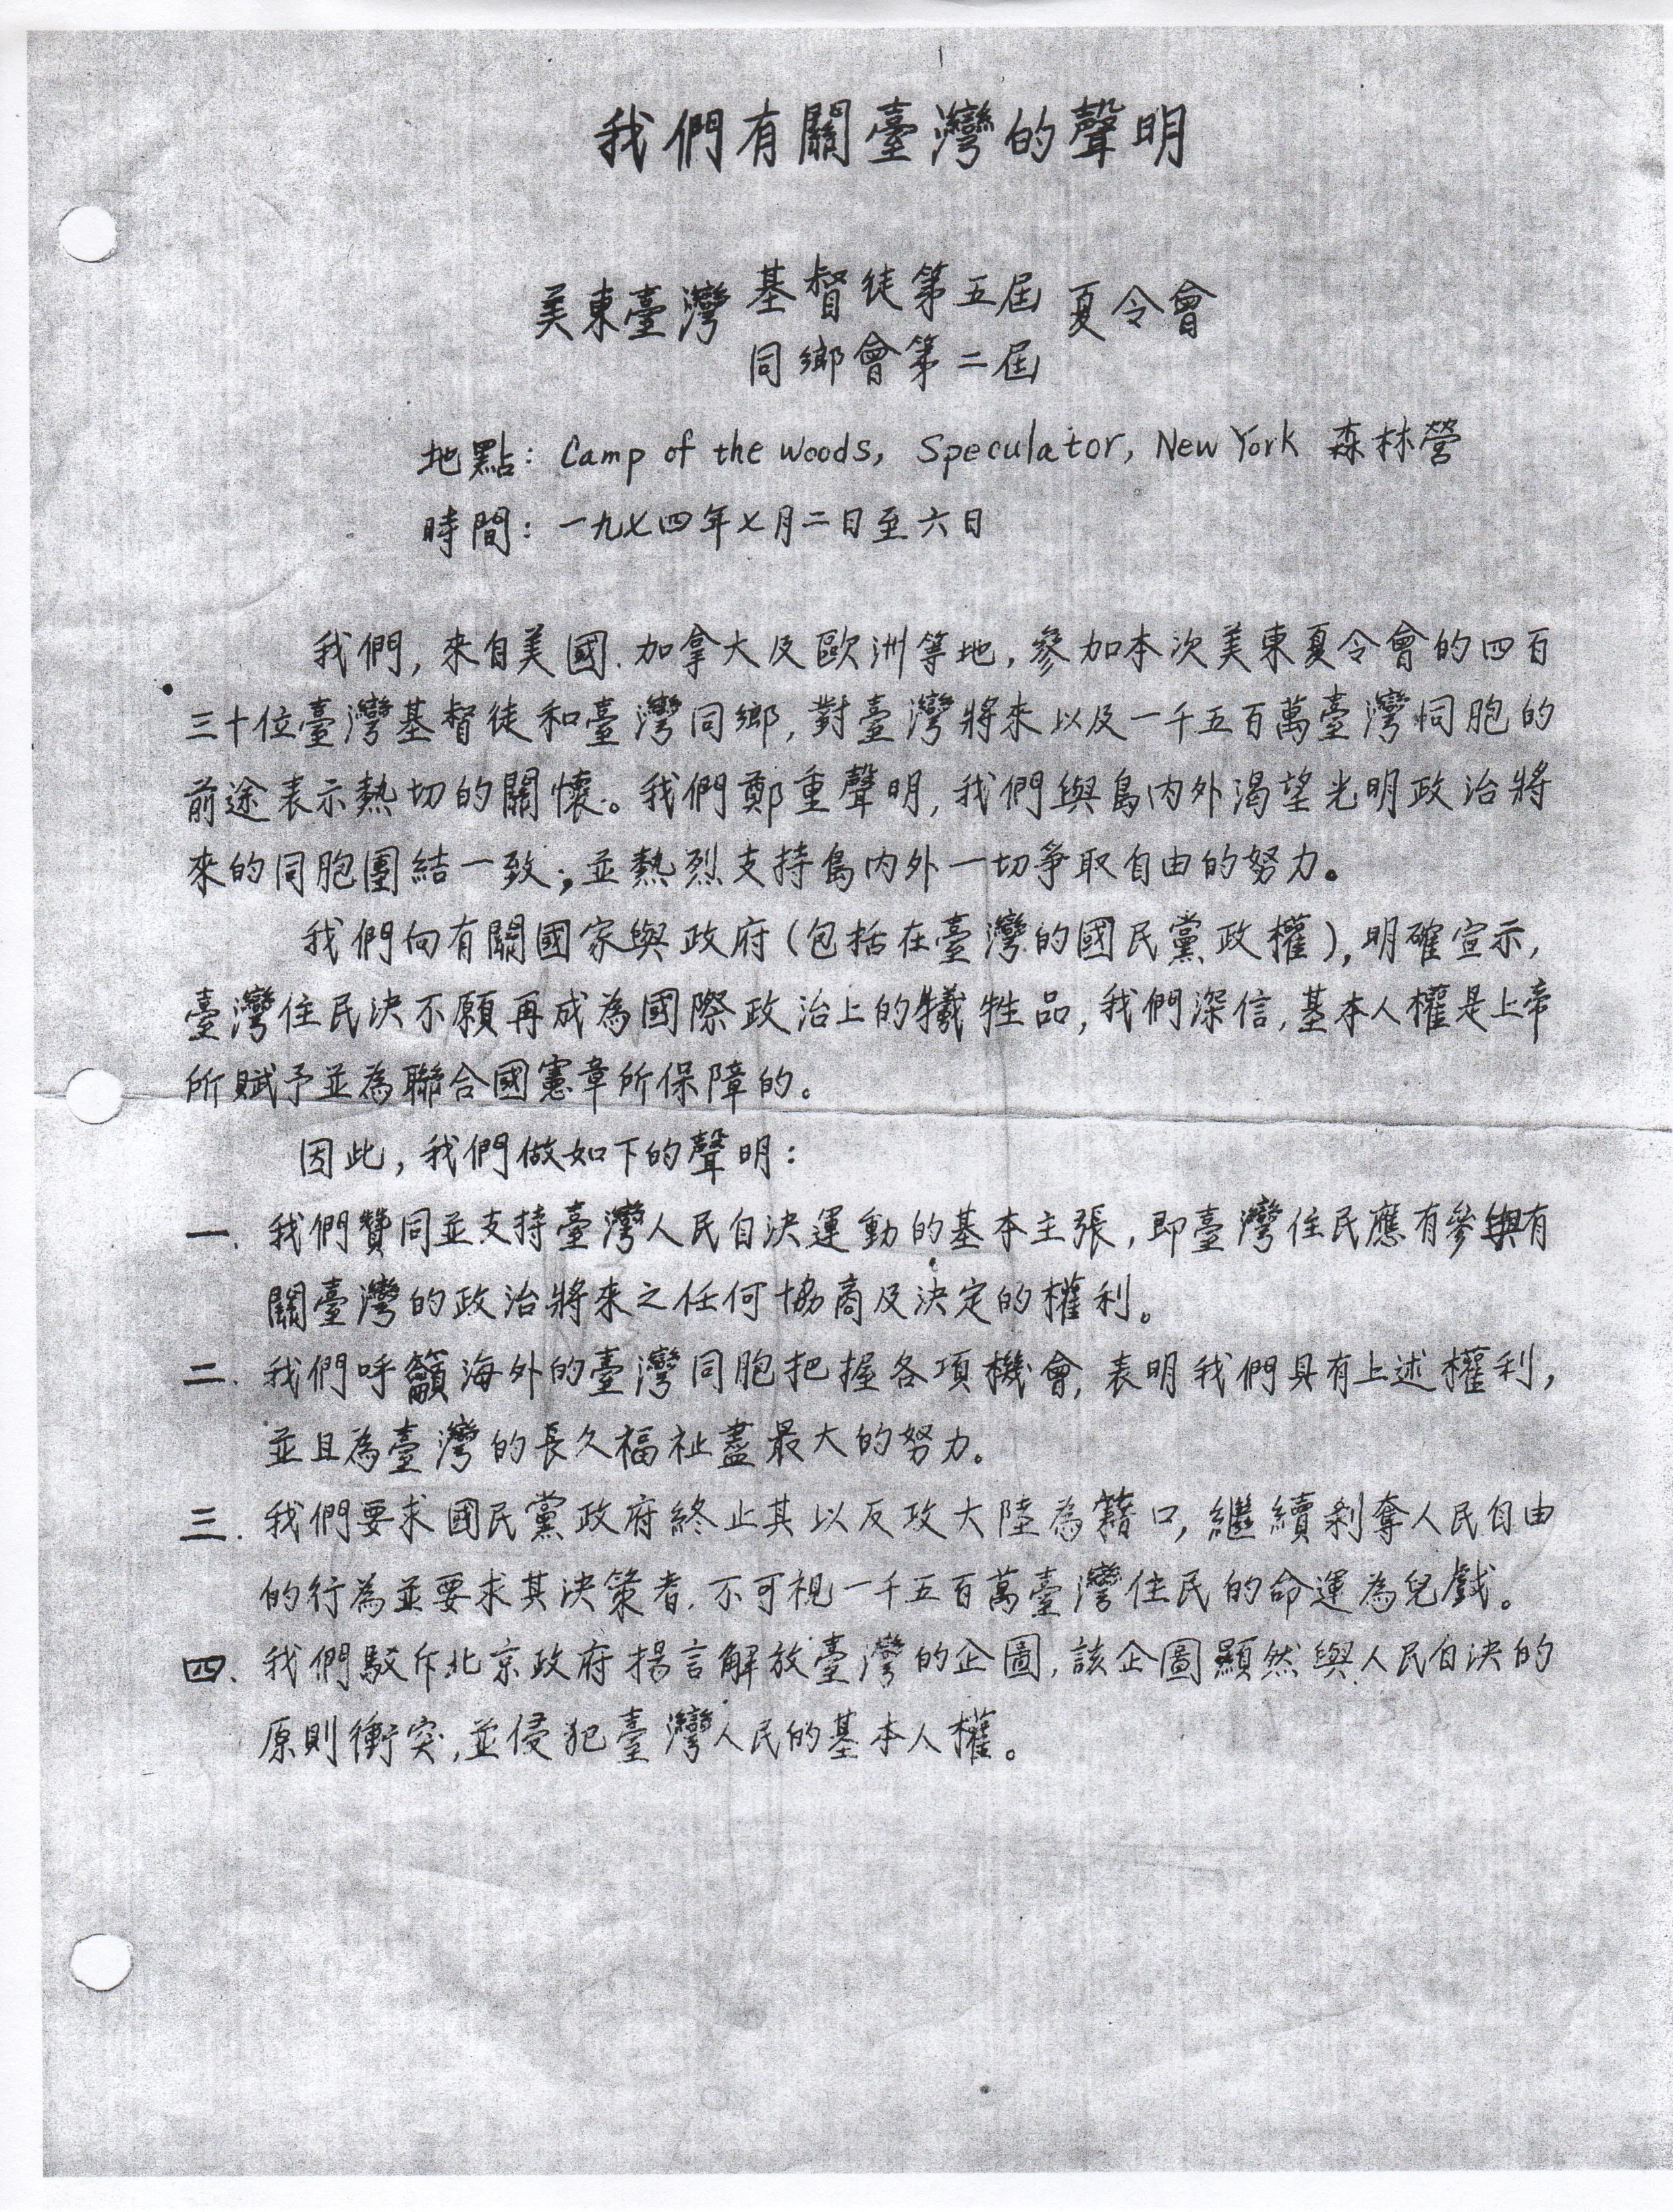 我們有關臺灣的聲明
美東臺灣 基督徒第五屆 夏令會
同鄉會第二屆
地點: Camp of the Woods, Speculator, New York 森林營
時間: 一九七四年七月二日至六日
我們,來自美國、加拿大及歐洲等地,參加本次美東夏令會的四百
三十位臺灣基督徒和臺灣同鄉,對臺灣將來以及一千五百萬臺灣同胞的
前途表示熱切的關懷。我們鄭重聲明,我們與島內外渴望光明政治將
來的同胞團結一致;並熱烈支持島內外一切爭取自由的努力。
我們向有關國家與政府(包括在臺灣的國民黨政權),明確宣示,
臺灣住民決不願再成為國際政治上的犧牲品,我們深信,基本人權是上帝
所賦予並為聯合國憲章所保障的。
因此,我們做如下的聲明:
一、我們贊同並支持臺灣人民自決運動的基本主張,即臺灣住民應有參與有
關臺灣的政治將來之任何協商及決定的權利。
二、我們呼籲海外的臺灣同胞把握各項機會,表明我們具有上述權利,
並且為臺灣的長久福祉盡最大的努力。
三、我們要求國民黨政府終止其以反攻大陸為藉口,繼續剝奪人民自由
的行為並要求其決策者,不可視一千五百萬臺灣住民的命運為兒戲。
四、我們駁斥北京政府揚言解放臺灣的企圖,該企圖顯然與人民自決的
原則衝突,並侵犯臺灣人民的基本人權。